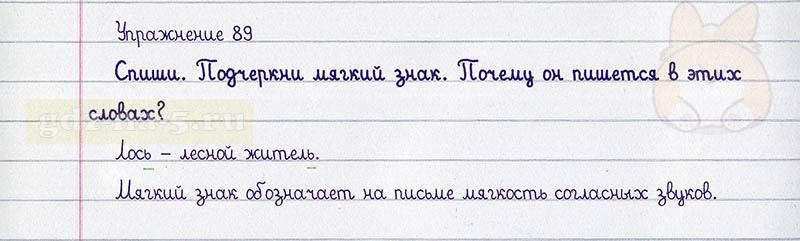 Упражнение 89
Спиши. Подчеркни мягкий знак. Почему он пишется в этих
словах?
gdz-na-5.ru
Лось – лесной житель.
Мягкий знак обозначает на письме мягкость согласных звуков.